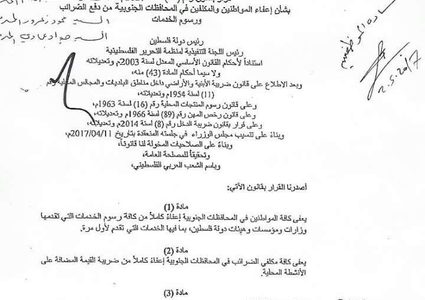 بشأن إعفاء المواطنين والمكلفين في المحافظات الجنوبية من دفع الضرائب
ورسوم الخدمات
رئيس دولة فلسطين
رئيس اللجنة التنفيذية لمنظمة التحرير الفلسطينية
استناداً لأحكام القانون الأساسي المعدل لسنة 2003م وتعديلاته
ولا سيما أحكام المادة (43) منه،
وبعد الاطلاع على قانون ضريبة الأبنية والأراضي داخل مناطق البلديات والمجالس المحلية رقم
(11) لسنة 1954م وتعديلاته،
وعلى قانون رسوم المنتجات المحلية رقم (16) لسنة 1963م،
وعلى قانون رخص المهن رقم (89) لسنة 1966م وتعديلاته،
وعلى قرار بقانون ضريبة الدخل رقم (8) لسنة 2014م وتعديلاته،
وبناءً على تنسيب مجلس الوزراء في جلسته المنعقدة بتاريخ 2017/04/11م،
وبناءً على الصلاحيات المخولة لنا قانوناً،
وتحقيقاً للمصلحة العامة،
وباسم الشعب العربي الفلسطيني،
أصدرنا القرار بقانون الآتي:
مادة (1)
يعفى كافة المواطنين في المحافظات الجنوبية إعفاءً كاملاً من كافة رسوم الخدمات التي تقدمها
وزارات ومؤسسات وهيئات دولة فلسطين، بما فيها الخدمات التي تقدم لأول مرة.
مادة (2)
يعفى كافة مكلفي الضرائب في المحافظات الجنوبية إعفاءً كاملاً من ضريبة القيمة المضافة على
الأنشطة المحلية.
مادة (3)
2.5.2017